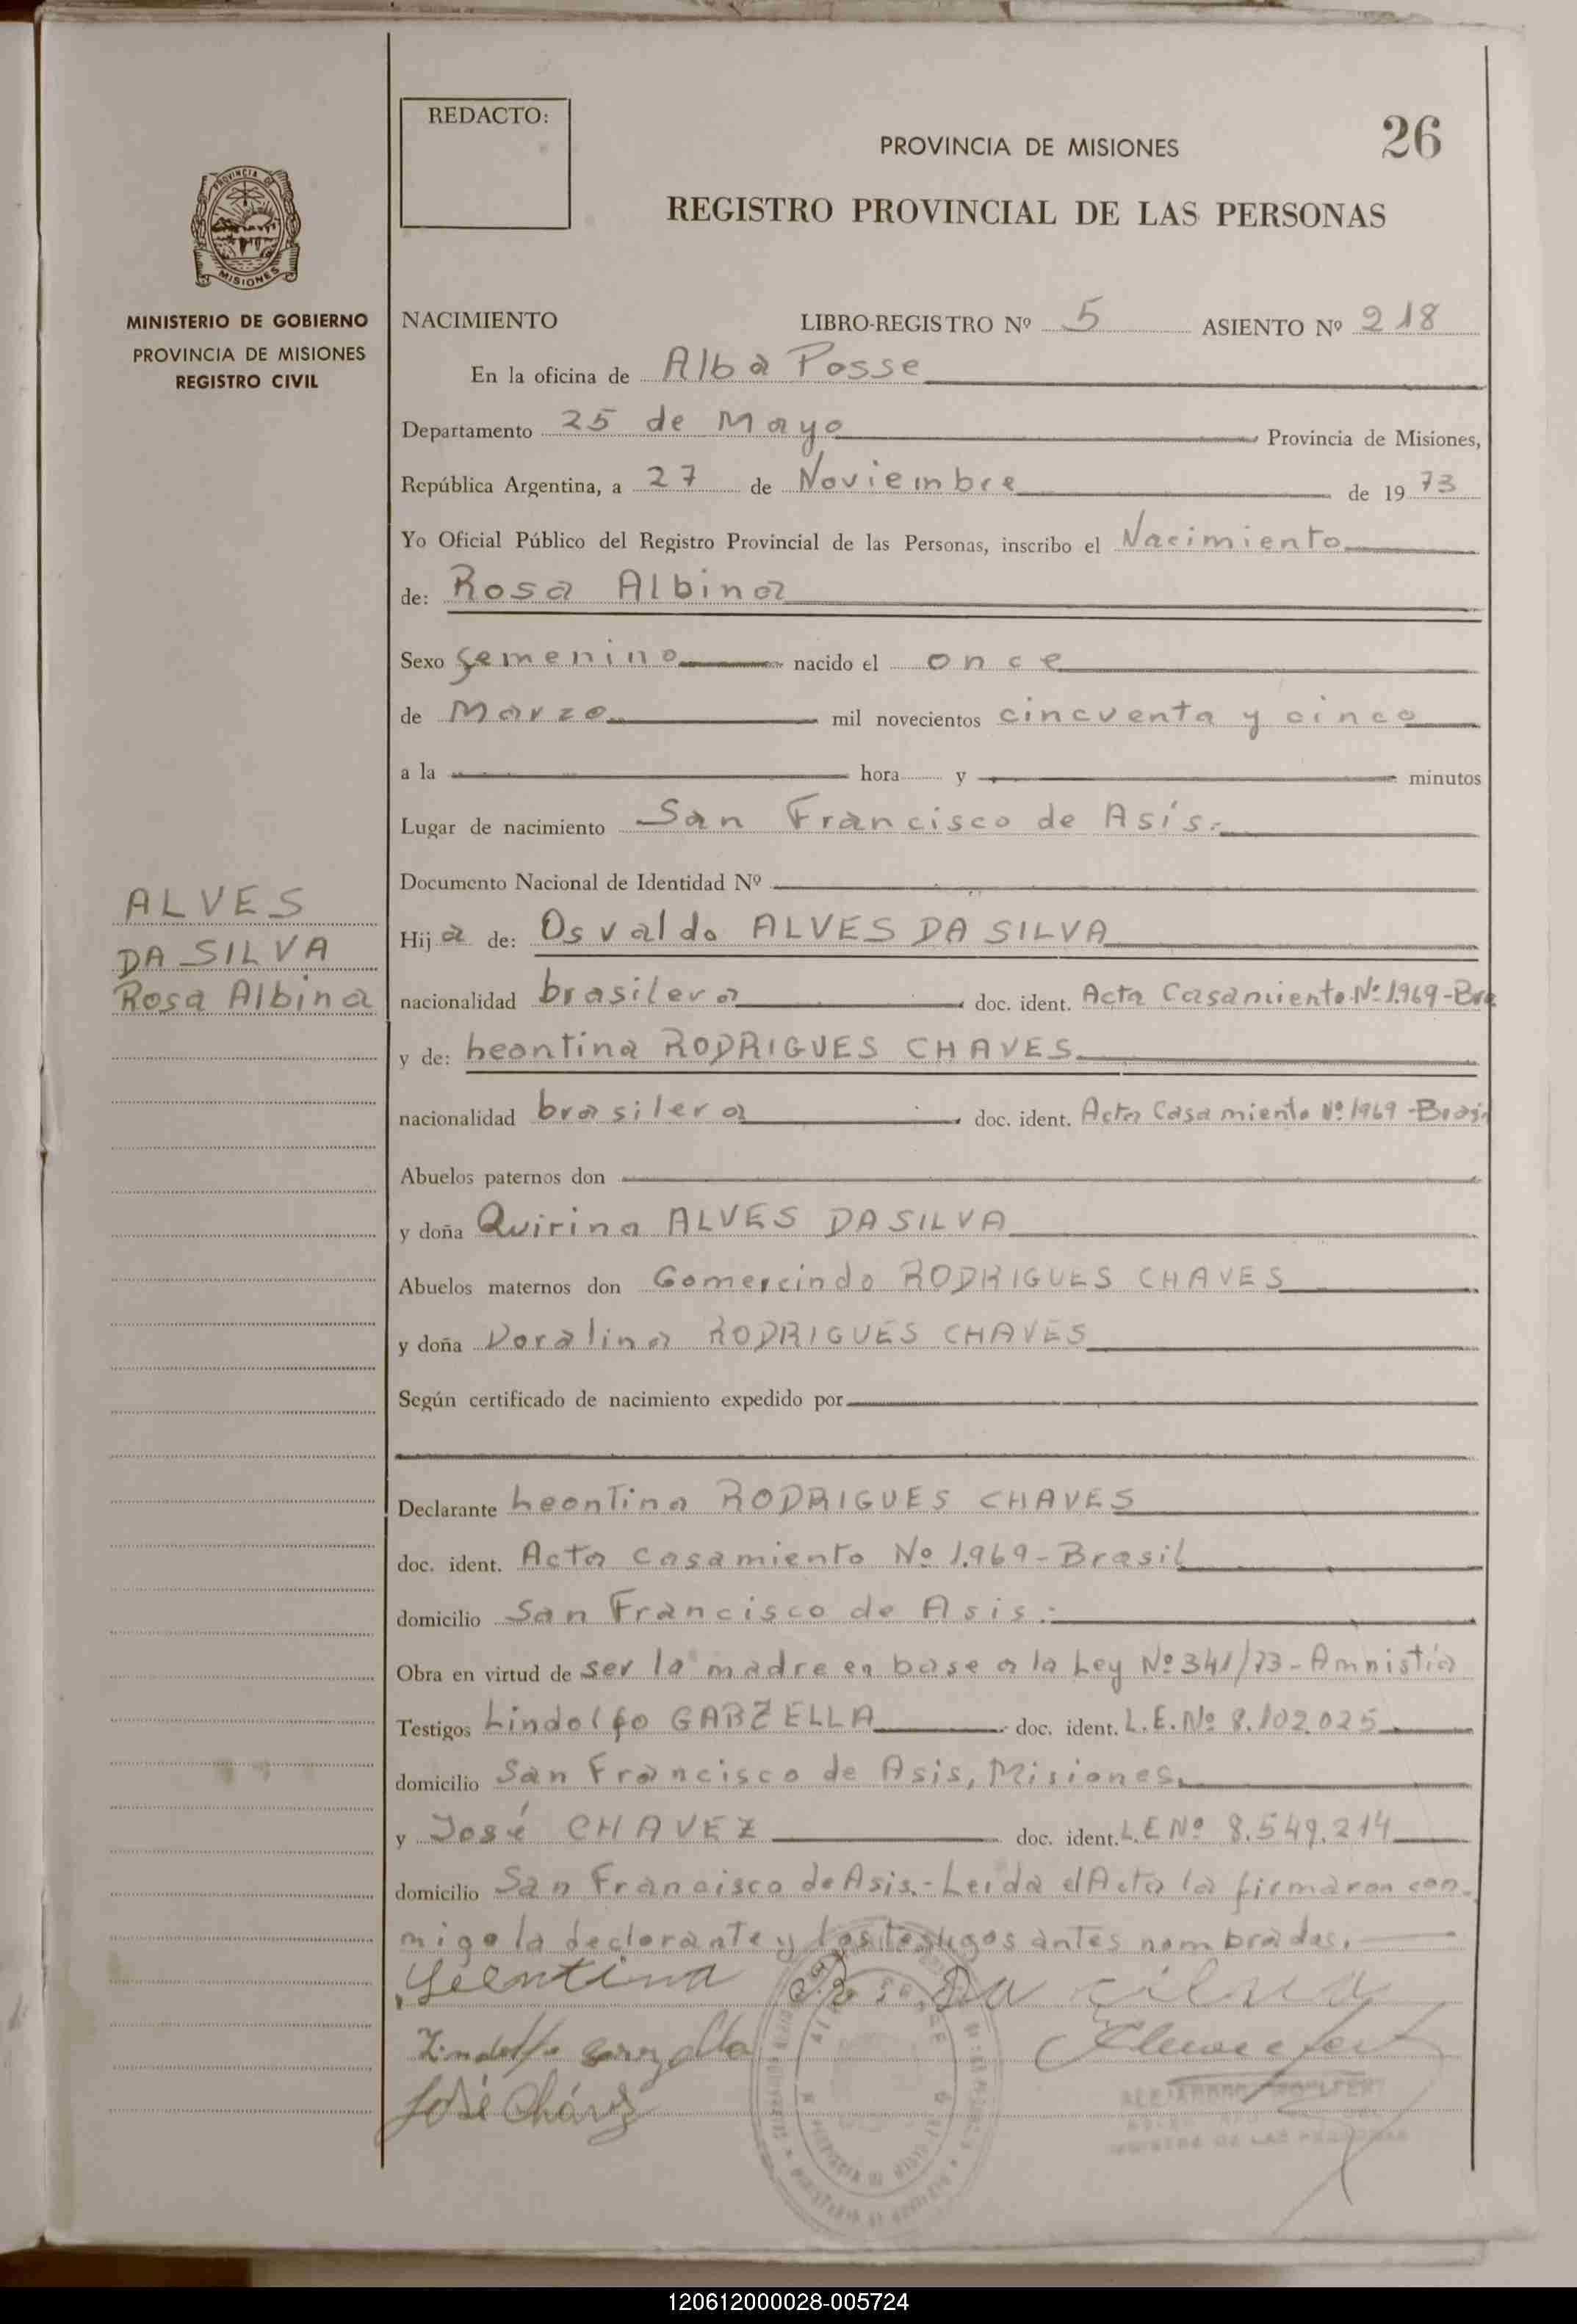 REDACTO:
26
PROVINCIA DE MISIONES
REGISTRO PROVINCIAL DE LAS PERSONAS
PROVINCIA DE
MISIONES
MINISTERIO DE GOBIERNO
PROVINCIA DE MISIONES
REGISTRO CIVIL
NACIMIENTO LIBRO-REGISTRO Nº 5 ASIENTO Nº 218
En la oficina de Alba Posse
Departamento 25 de Mayo Provincia de Misiones,
República Argentina, a 27 de Noviembre de 19 73
Yo Oficial Público del Registro Provincial de las Personas, inscribo el Nacimiento
de: Rosa Albina
Sexo femenino nacido el once
de Marzo mil novecientos cincuenta y cinco
a la hora y minutos
Lugar de nacimiento San Francisco de Asís.-
Documento Nacional de Identidad Nº
ALVES
DA SILVA
Rosa Albina
Hij a de: Osvaldo ALVES DA SILVA
nacionalidad brasilera doc. ident. Acta Casamiento Nº 1.969-Bra
y de: Leontina RODRIGUES CHAVES
nacionalidad brasilera doc. ident. Acta Casamiento Nº 1969-Brasi
Abuelos paternos don
y doña Quirina ALVES DA SILVA
Abuelos maternos don Gomercindo RODRIGUES CHAVES
y doña Doralina RODRIGUES CHAVES
Según certificado de nacimiento expedido por
Declarante Leontina RODRIGUES CHAVES
doc. ident. Acta casamiento Nº 1.969-Brasil
domicilio San Francisco de Asis.-
Obra en virtud de ser la madre en base a la Ley Nº 341/73-Amnistía
Testigos Lindolfo GARZELLA doc. ident. L.E.Nº 8.102.025
domicilio San Francisco de Asis, Misiones.
y José CHAVEZ doc. ident. L.E Nº 8.549.214
domicilio San Francisco de Asis.-Leída el Acta la firmaron con-
migo la declarante y los testigos antes nombrados.
Leentina R Da Cilva
Lindolfo Garzella
José Cháves
120612000028-005724